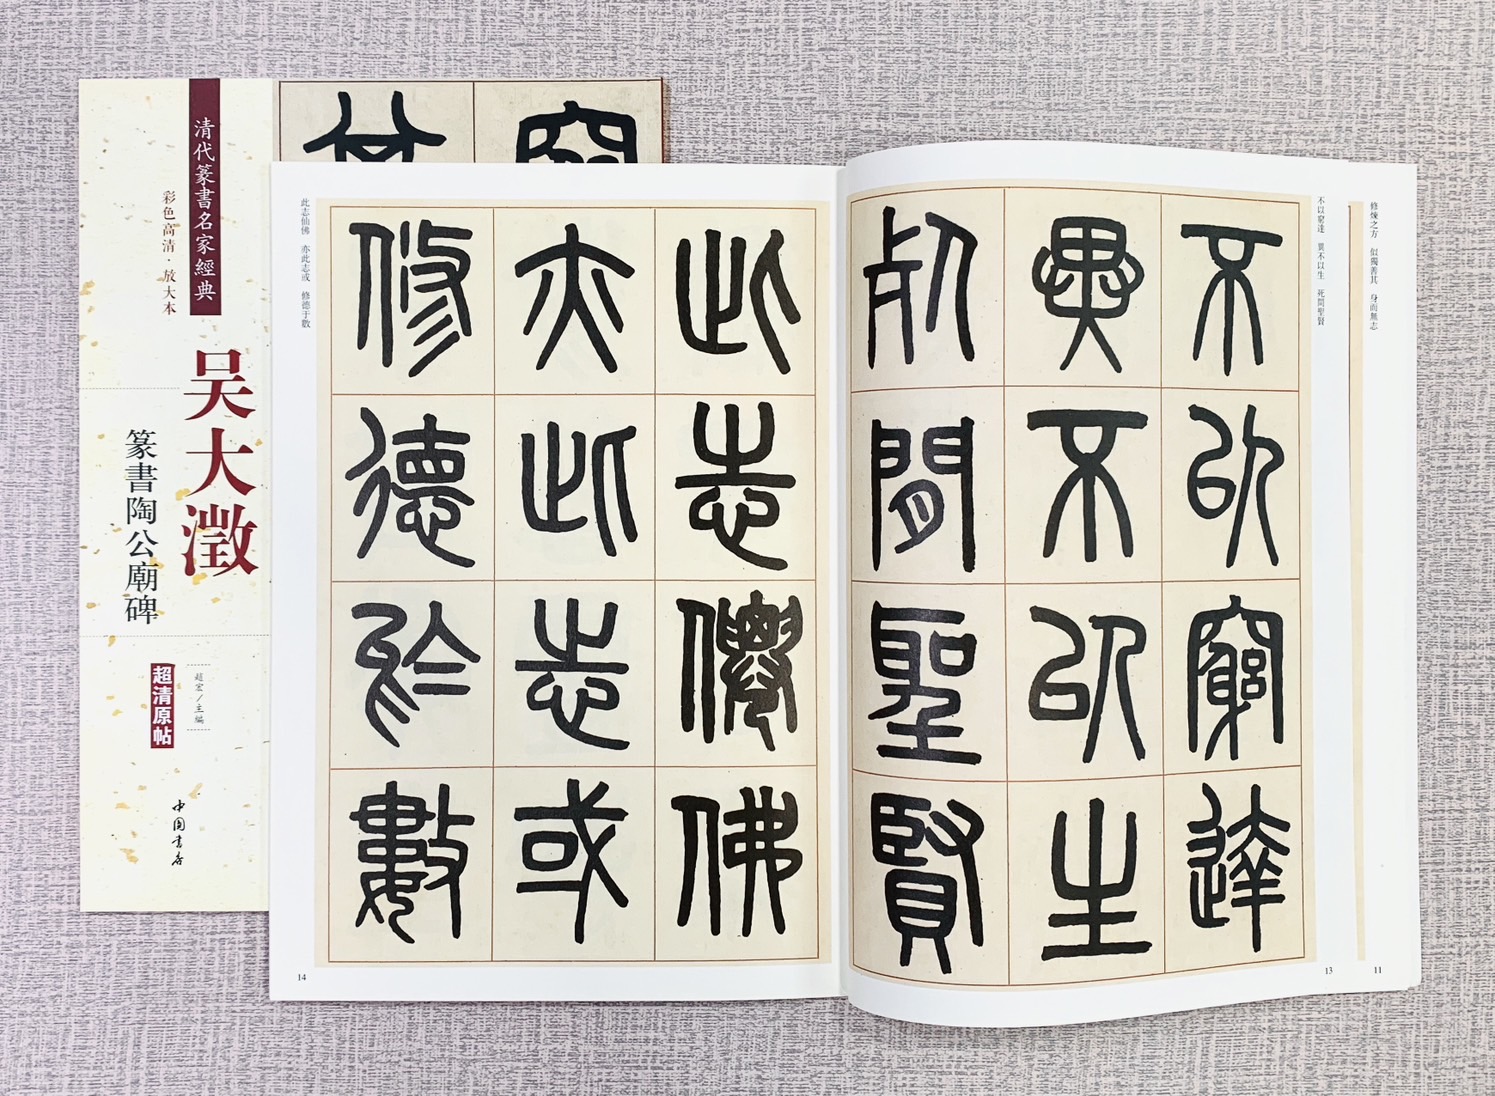 清代篆書名家經典
彩色高清·放大本
吴大澂
篆書陶公廟碑
超宏／主編
超清原帖
中国書店
修煉之方 似獨善其 身而無志
11
不以窮達 異不以生 死間聖賢
13
不以窮達
異不以生
死間聖賢
此志仙佛 亦此志或 修德于數
此志僊佛
亦此志或
修德於數
14